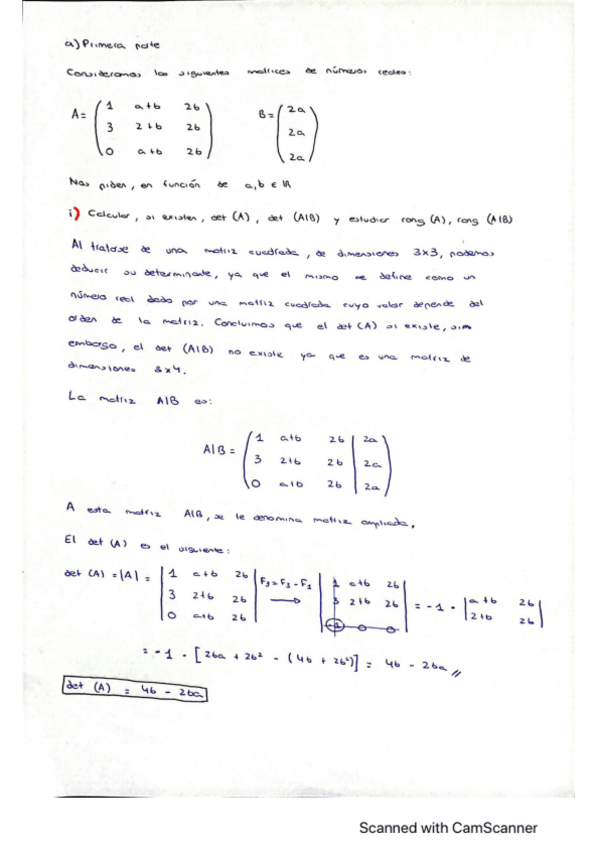 a) Primera parte
Consideramos las siguientes matrices de números reales:
A = ( 1 a+b 2b ) B = ( 2a )
( 3 2+b 2b ) ( 2a )
( 0 a+b 2b ) ( 2a )
Nos piden, en función de a, b ∈ ℝ
i) Calcular, si existen, det (A), det (A|B) y estudiar rang (A), rang (A|B)
Al tratarse de una matriz cuadrada, de dimensiones 3x3, podemos
deducir su determinante, ya que el mismo se define como un
número real dado por una matriz cuadrada cuyo valor depende del
orden de la matriz. Concluimos que el det (A) si existe, sin
embargo, el det (A|B) no existe ya que es una matriz de
dimensiones 3x4.
La matriz A|B es:
A|B = ( 1 a+b 2b | 2a )
( 3 2+b 2b | 2a )
( 0 a+b 2b | 2a )
A esta matriz A|B, se le denomina matriz ampliada.
El det (A) es el siguiente:
det (A) = |A| = | 1 a+b 2b | F3 = F3 - F1 | 1 a+b 2b | = -1 · | a+b 2b |
| 3 2+b 2b | → | 3 2+b 2b | | 2+b 2b |
| 0 a+b 2b | | -1 0 0 |
= -1 · [2ba + 2b² - (4b + 2b²)] = 4b - 2ba //
det (A) = 4b - 2ba
Scanned with CamScanner